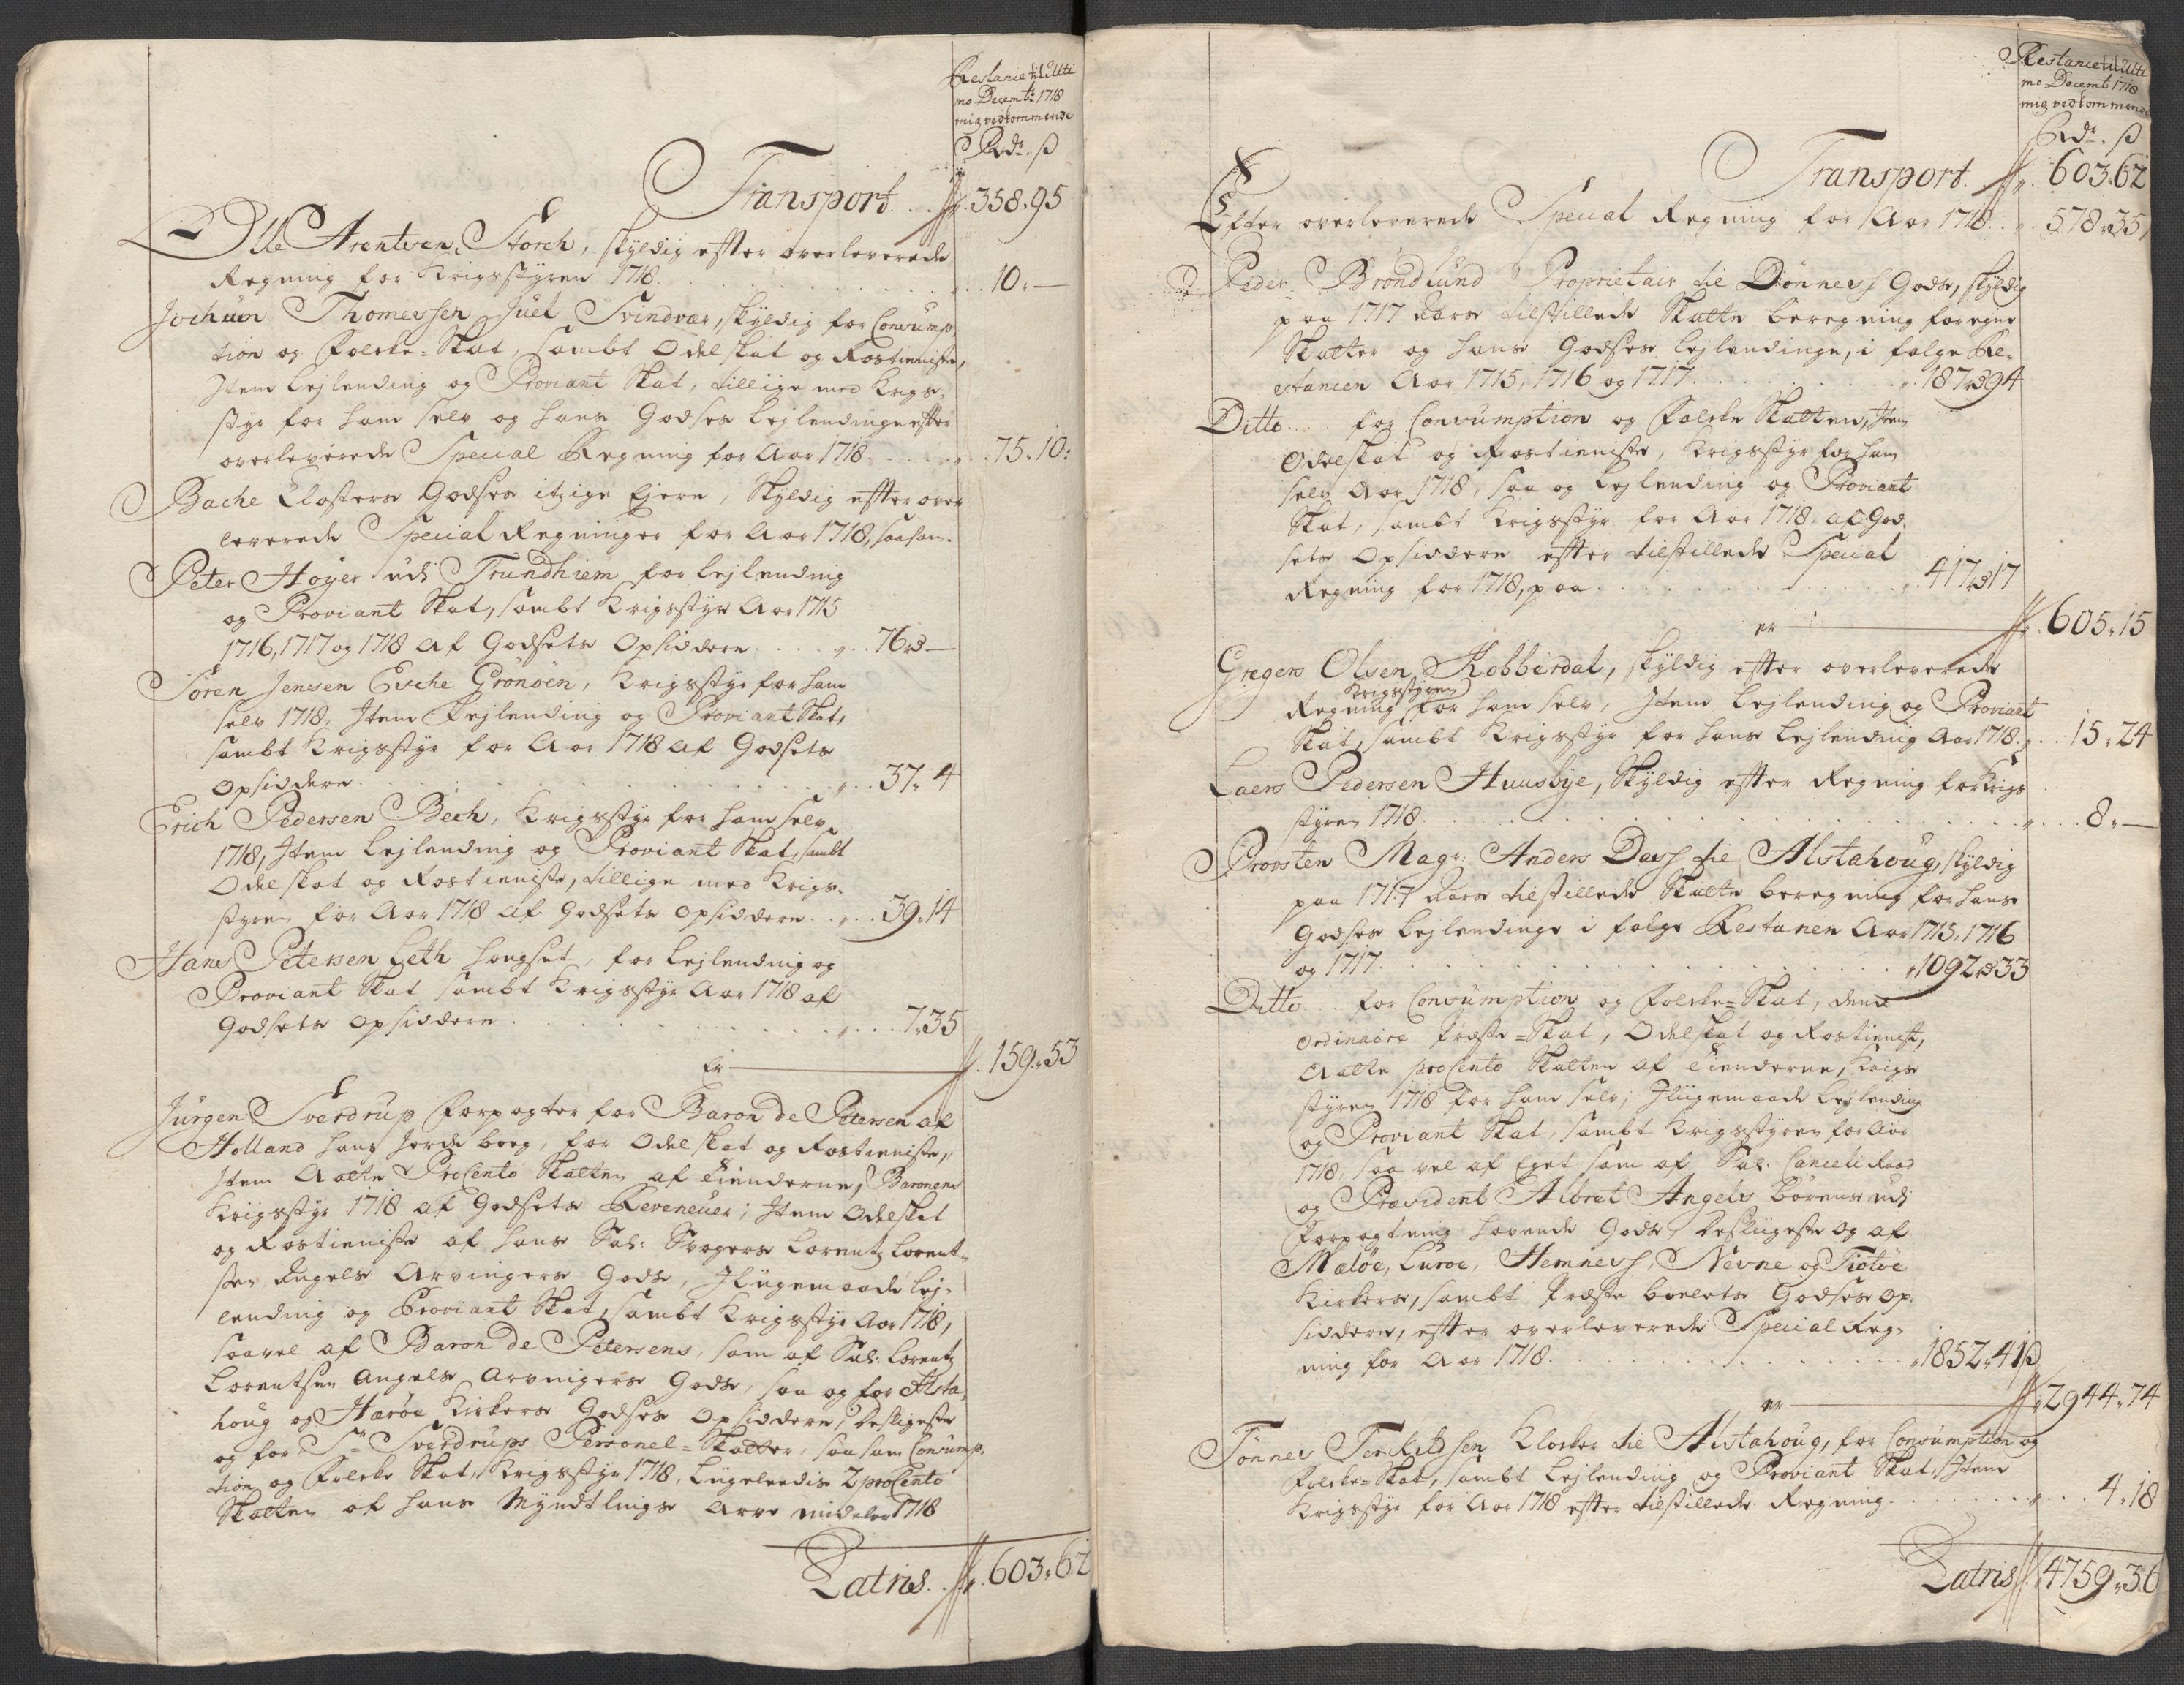 Restance til Ulti
mo Decembr 1718
mig vedkommende
Rdr. ß
Transport . . 358.95
Olle Arentsen Storch, skyldig efter overleverede
Regning for Krigsstyren 1718 . . . 10.—
Jochum Thomessen Juel Svindvær, skyldig for Consump-
tion og Folcke-Skat, sambt Odelskat og Rostieniste,
Item Lejlending og Proviant Skat, tillige med Krigs-
styr for ham selv og hans Godses Lejlendinge efter
overleverede Special Regning for Aar 1718 . . . 75.10:
Bache Closters Godses itzige Ejere, Skyldig efter over
leverede Special Regninger for Aar 1718, saasom.
Peter Hoÿer udi Trundhiem for Lejlending
og Proviant Skat, sambt Krigsstyr Aar 1715
1716, 1717 og 1718 af Godsets Opsiddere . . . 76.—
Sören Jensen Grönöen, Krigsstyr for ham
selv 1718, Item Lejlending og Proviant Skat,
sambt Krigsstyr for Aar 1718 af Godsets
Opsiddere . . . 37.4
Erich Pedersen Bech, Krigsstyr for ham selv
1718, Item Lejlending og Proviant Skat, sambt
Odelskat og Rostieniste, tillige med Krigs-
styren for Aar 1718 af Godsets Opsiddere . . 39.14
Hans Petersen Leth, for Lejlending og
Proviant Skat sambt Krigsstyr Aar 1718 af
Godsets Opsiddere . . . 7.35
Er — 159.53
Jürgen Sverdrup Forpagter for Baron de Petersen af
Holland hans Jorde boeg, for Odelskat og Rostieniste,
Item Aatte ProCento Skatten af Tienderne, Baronens
Krigsstyr 1718 af Godsets Reveneuer; Item Odelskat
og Rostieniste af hans Sal: Svogers Lorentz Lorent-
sen Angels Arvingers Gods, Iligemaade Lej-
lending og Proviant Skat, sambt Krigsstyr Aar 1718,
saavel af Baron de Petersens, som af Sal: Lorentz
Lorentsen Angels Arvingers Gods, saa og for Alsta-
houg og Heröe Kirkers Godses Opsiddere, Desligeste
og for Sr Sverdrups Personel-Skatter, saasom Consump-
tion og Folcke Skat, Krigsstyr 1718, Ligeledis 2 proCento
Skatten af hans Myndtlings Arve mideler 1718
Latris . . 603.62
Restance til Ulti
mo Decemb 1718
mig vedkommende
Rdr. ß
Transport . . 603.62
Efter overleverede Special Regning for Aar 1718 . . 578.35
Peder Bröndlund Proprietair til Dönnes Gods, skyldig
paa 1717 Aars tilstillede Skatte beregning for egne
Skatter og hans Godses Lejlendinge, i følge Re-
stancen Aar 1715, 1716 og 1717 . . . 187.94
Ditto . . for Consumption og Folcke Skatten, Item
Odelskat og Rostieniste, Krigsstyr for ham
selv Aar 1718, saa og Lejlending og Proviant
Skat, sambt Krigsstyr for Aar 1718 af God-
sets Opsiddere efter tilstillede Special
Regning for 1718, paa . . . 417.17
er — 605.15
Gregers Olsen Kobberdal, skyldig efter overleverede
Regning Krigsstyren for ham selv, Item Lejlending og Proviant
Skat, sambt Krigsstyr for hans Lejlending Aar 1718 . . 15.24
Laers Pedersen Huusbye, Skyldig efter Regning for Krigs
styren 1718 . . . 8.—
Provsten Magr: Anders Dass til Alstahoug, skyldig
paa 1717 Aars tilstillede Skatte beregning for hans
Godses Lejlendinge i følge Restancen Aar 1715, 1716
og 1717 . . . 1092.33
Ditto . . for Consumption og Folcke-Skat, den
ordinaire Præste-Skat, Odelskat og Rostieniste,
Aatte proCento Skatten af Tienderne, Krigs
styren 1718 for ham selv; Iligemaade Lejlending
og Proviant Skat, sambt Krigsstyren for Aar
1718, saa vel af Eget som af Sal: Cancelie Raad
og Præsident Albret Angels Börens udi
Forpagtning havende Gods, Desligeste og af
Melöe, Luröe, Hemness, Nesne og Tiötöe
Kirkers, sambt Præste boelets Godses Op-
siddere, efter overleverede Special Reg-
ning for Aar 1718 . . . 1852.41ß
er — 2944.74
Tönnes Terkildsen Klocker til Alstahoug, for Consumption og
Folcke-Skat, sambt Lejlending og Proviant Skat, Item
Krigsstyr for Aar 1718 efter tilstillede Regning . . . 4.18
Latris . . 4759.36